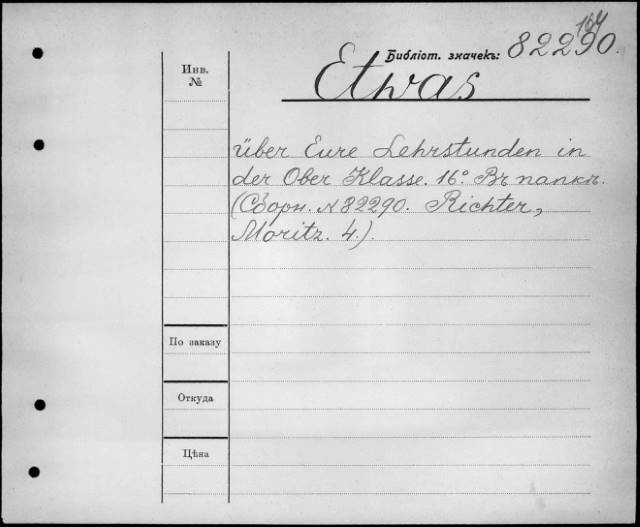 107
Библіот. значекъ: 82290.
Инв.
№
Etwas
über Eure Lehrstunden in
der Ober Klasse. 16° Въ папкѣ.
(Сборн. № 82290. Richter,
Moritz. 4.).
По заказу
Откуда
Цѣна